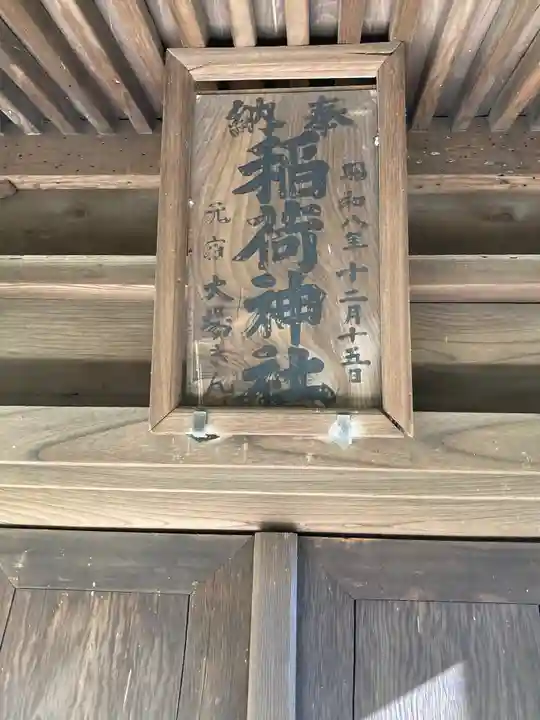 奉納
昭和八年十二月十五日
稲荷神社
元宿 大場きん